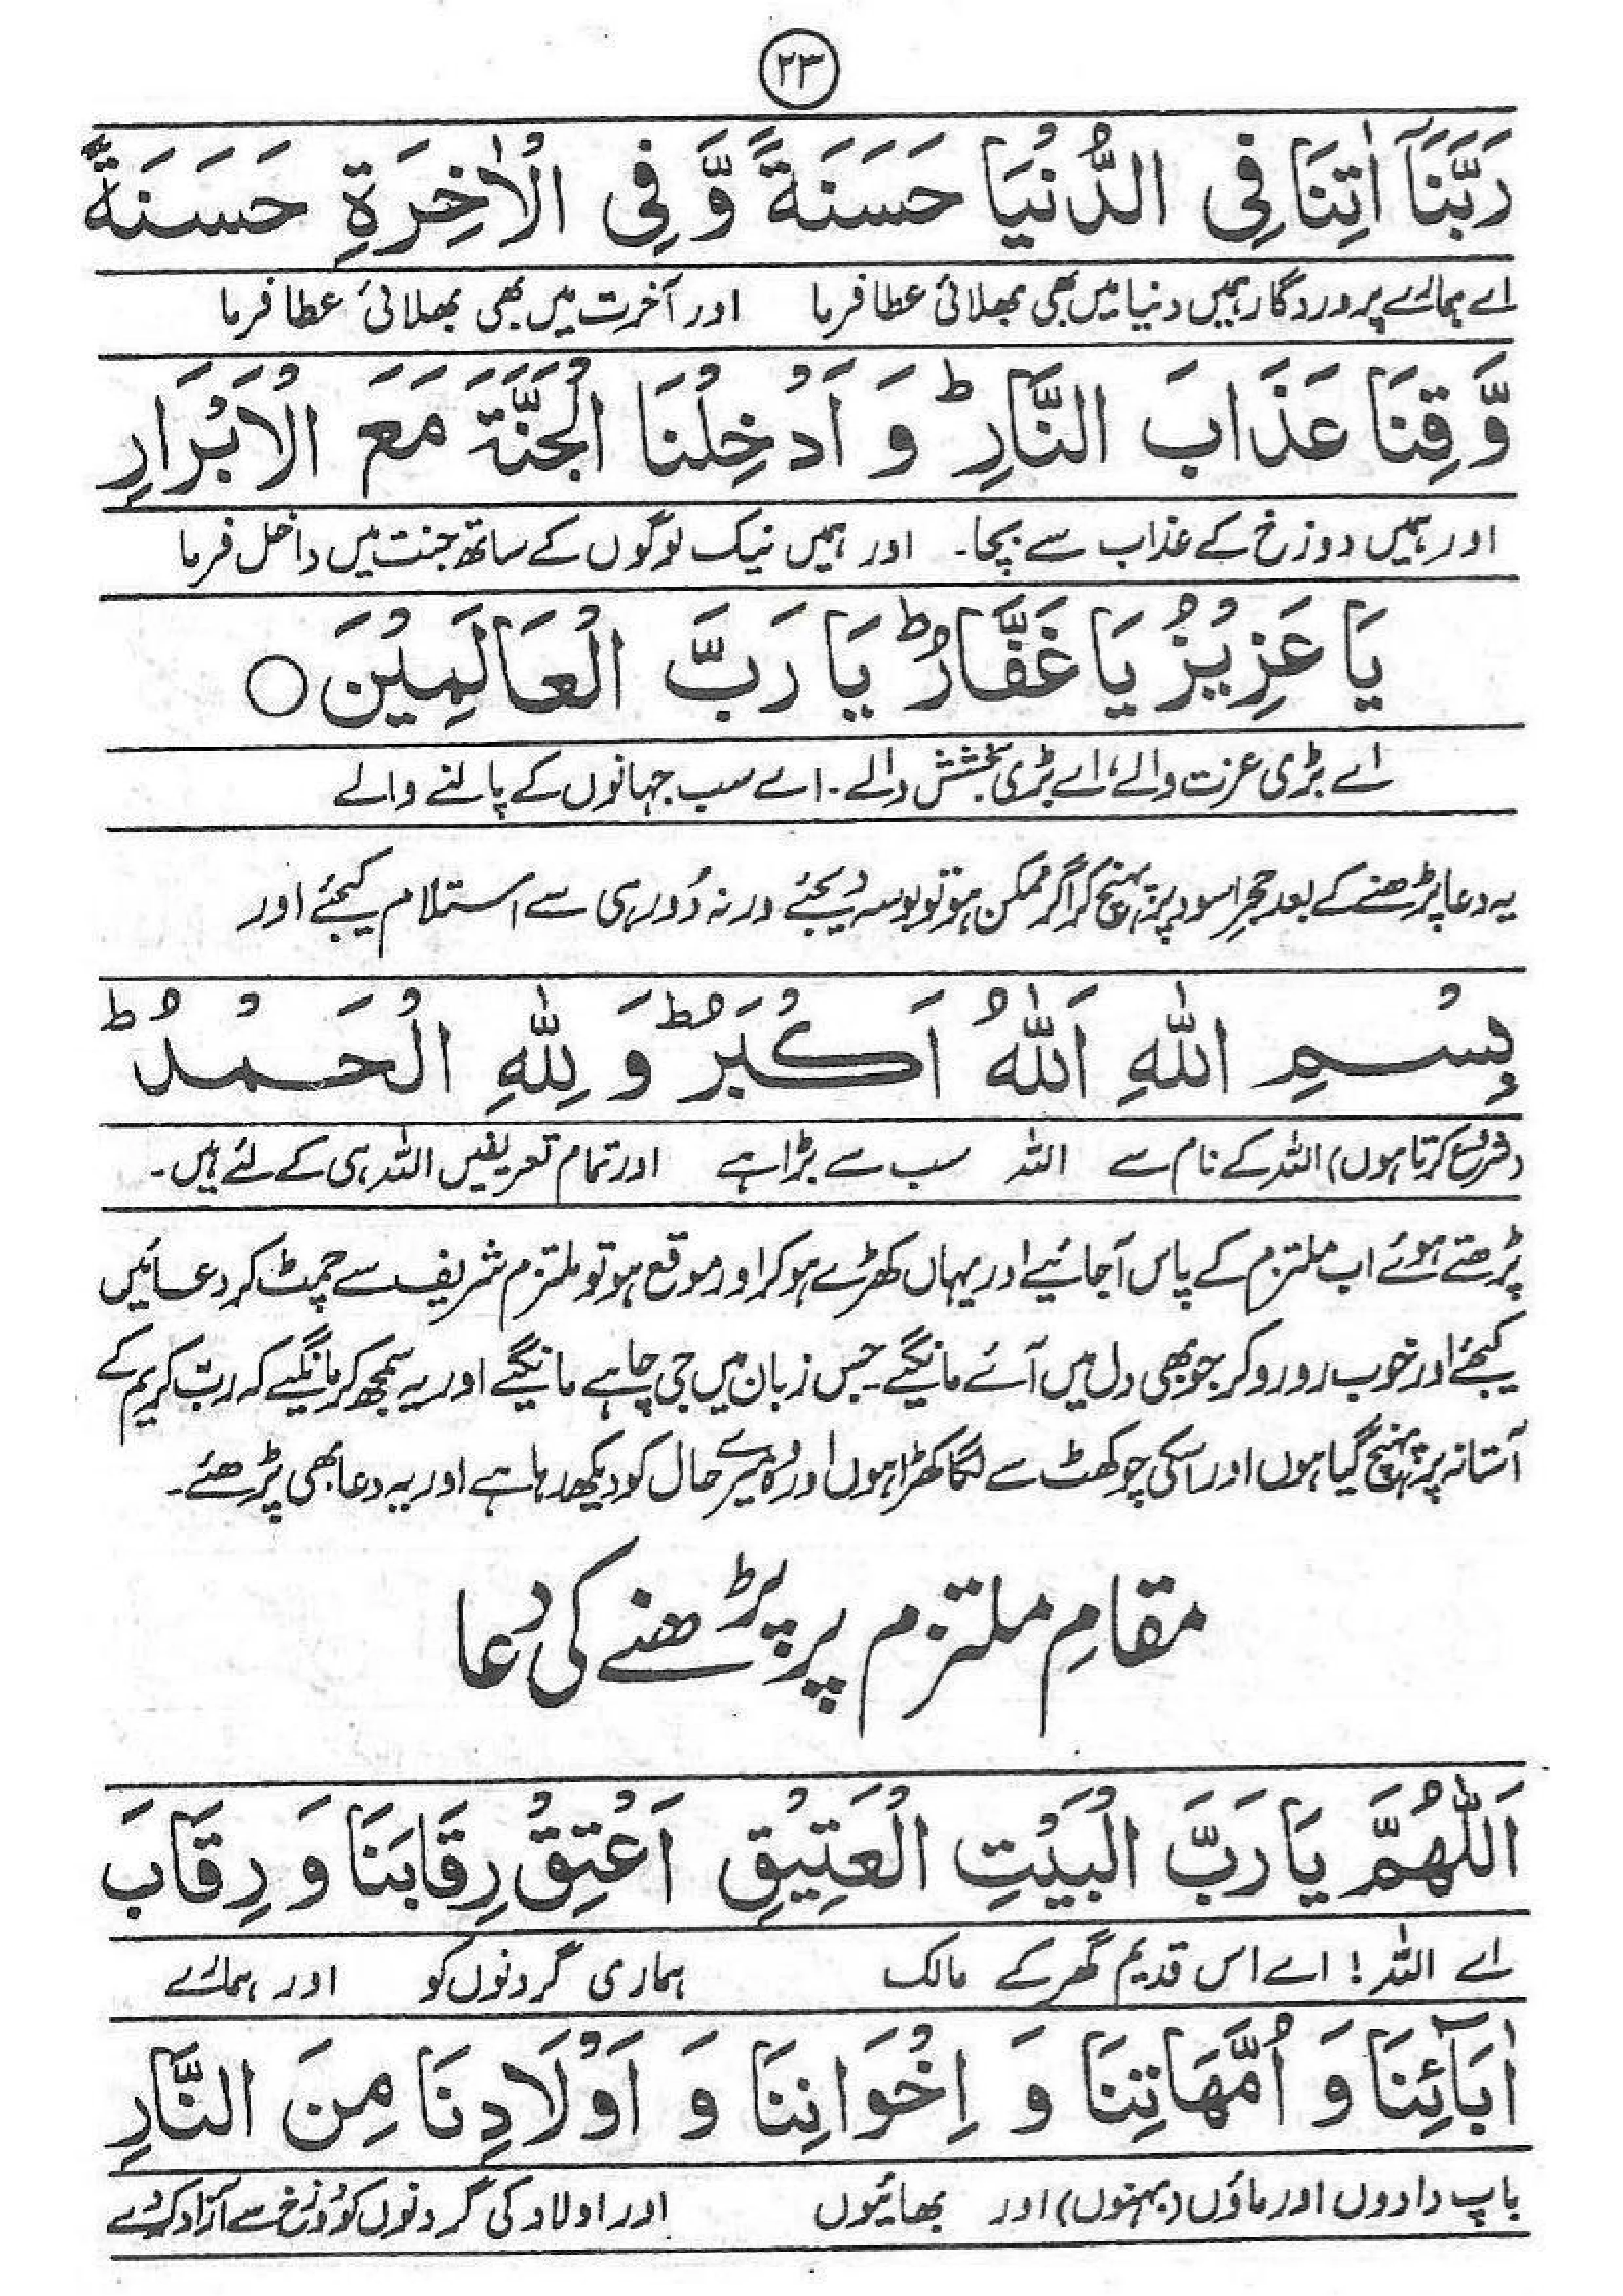 ۲۳
رَبَّنَآ اٰتِنَا فِی الدُّنْیَا حَسَنَةً وَّ فِی الْاٰخِرَةِ حَسَنَةً
اے ہمارے پروردگار ہمیں دنیا میں بھی بھلائی عطا فرما اور آخرت میں بھی بھلائی عطا فرما
وَّ قِنَا عَذَابَ النَّارِ ؕ وَ اَدْخِلْنَا الْجَنَّةَ مَعَ الْاَبْرَارِ
اور ہمیں دوزخ کے عذاب سے بچا۔ اور ہمیں نیک لوگوں کے ساتھ جنت میں داخل فرما
یَا عَزِیْزُ یَا غَفَّارُ ؕ یَا رَبَّ الْعَالَمِیْنَ ○
اے بڑی عزت والے، اے بڑی بخشش والے۔ اے سب جہانوں کے پالنے والے
یہ دعا پڑھنے کے بعد حجرِ اسود پر پہنچ کر اگر ممکن ہو تو بوسہ دیجئے ورنہ دُور ہی سے استلام کیجئے اور
بِسْمِ اللّٰهِ اَللّٰهُ اَكْبَرُ ؕ وَ لِلّٰهِ الْحَمْدُ ؕ
(شروع کرتا ہوں) اللہ کے نام سے اللہ سب سے بڑا ہے اور تمام تعریفیں اللہ ہی کے لئے ہیں۔
پڑھتے ہوئے اب ملتزم کے پاس آجائیے اور یہاں کھڑے ہو کر اور موقع ہو تو ملتزم شریف سے چمٹ کر دعائیں
کیجئے اور خوب رو رو کر جو بھی دل میں آئے مانگیے۔ جس زبان میں جی چاہے مانگیے اور یہ سمجھ کر مانگیے کہ ربّ کریم کے
آستانہ پر پہنچ گیا ہوں اور اسکی چوکھٹ سے لگا کھڑا ہوں اور وہ میرے حال کو دیکھ رہا ہے اور یہ دعا بھی پڑھئے۔
مقامِ ملتزم پر پڑھنے کی دُعا
اَللّٰهُمَّ یَا رَبَّ الْبَیْتِ الْعَتِیْقِ اَعْتِقْ رِقَابَنَا وَ رِقَابَ
اے اللہ! اے اس قدیم گھر کے مالک ہماری گردنوں کو اور ہمارے
اٰبَآئِنَا وَ اُمَّهَاتِنَا وَ اِخْوَانِنَا وَ اَوْلَادِنَا مِنَ النَّارِ
باپ دادوں اور ماؤں (بہنوں) اور بھائیوں اور اولاد کی گردنوں کو دوزخ سے آزاد کردے